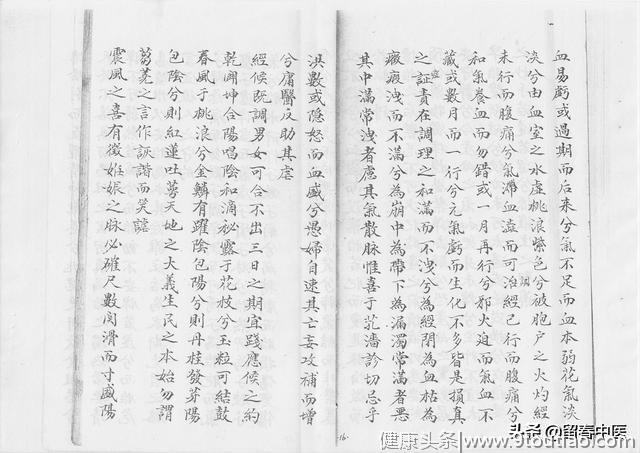 血易虧或過期而后来兮氣不足而血本弱花氣淡
淡兮由血室之水虛桃浪紫色兮被胞户之火灼經
未行而腹痛兮氣滯血澁而可治經已行而腹痛兮
調
和氣養血而勿錯或一月再行兮邪火迫而氣血不
藏或數月而一行兮元氣虧而生化不多皆是損真
之証責在調理之和滿而不洩兮為經閉為血枯為
瘕洩而不滿兮為崩中為帶下為漏濁常滿者惡
其中滿常洩者慮其氣散脉惟喜于芤潘診切忌乎
洪數或隐怒而血盛兮愚婦自速其亡妄攻補而增
兮庸醫反助其虐
經候既調男女可合不出三日之期宜踐應候之約
乾開坤合陽唱陰和滴秘露于花枝兮玉粒可結鼓
春風于桃浪兮金鱗有躍陰包陽兮則丹桂發芽陽
包陰兮則紅蓮吐萼天地之大義生民之本始勿謂
蒭蕘之言作詼諧而笑謔
震風之喜有徵姙娠之脉必確尺數関滑而寸盛陽
-16-
头条 @解春中医
健康头条 www.9toutiao.com